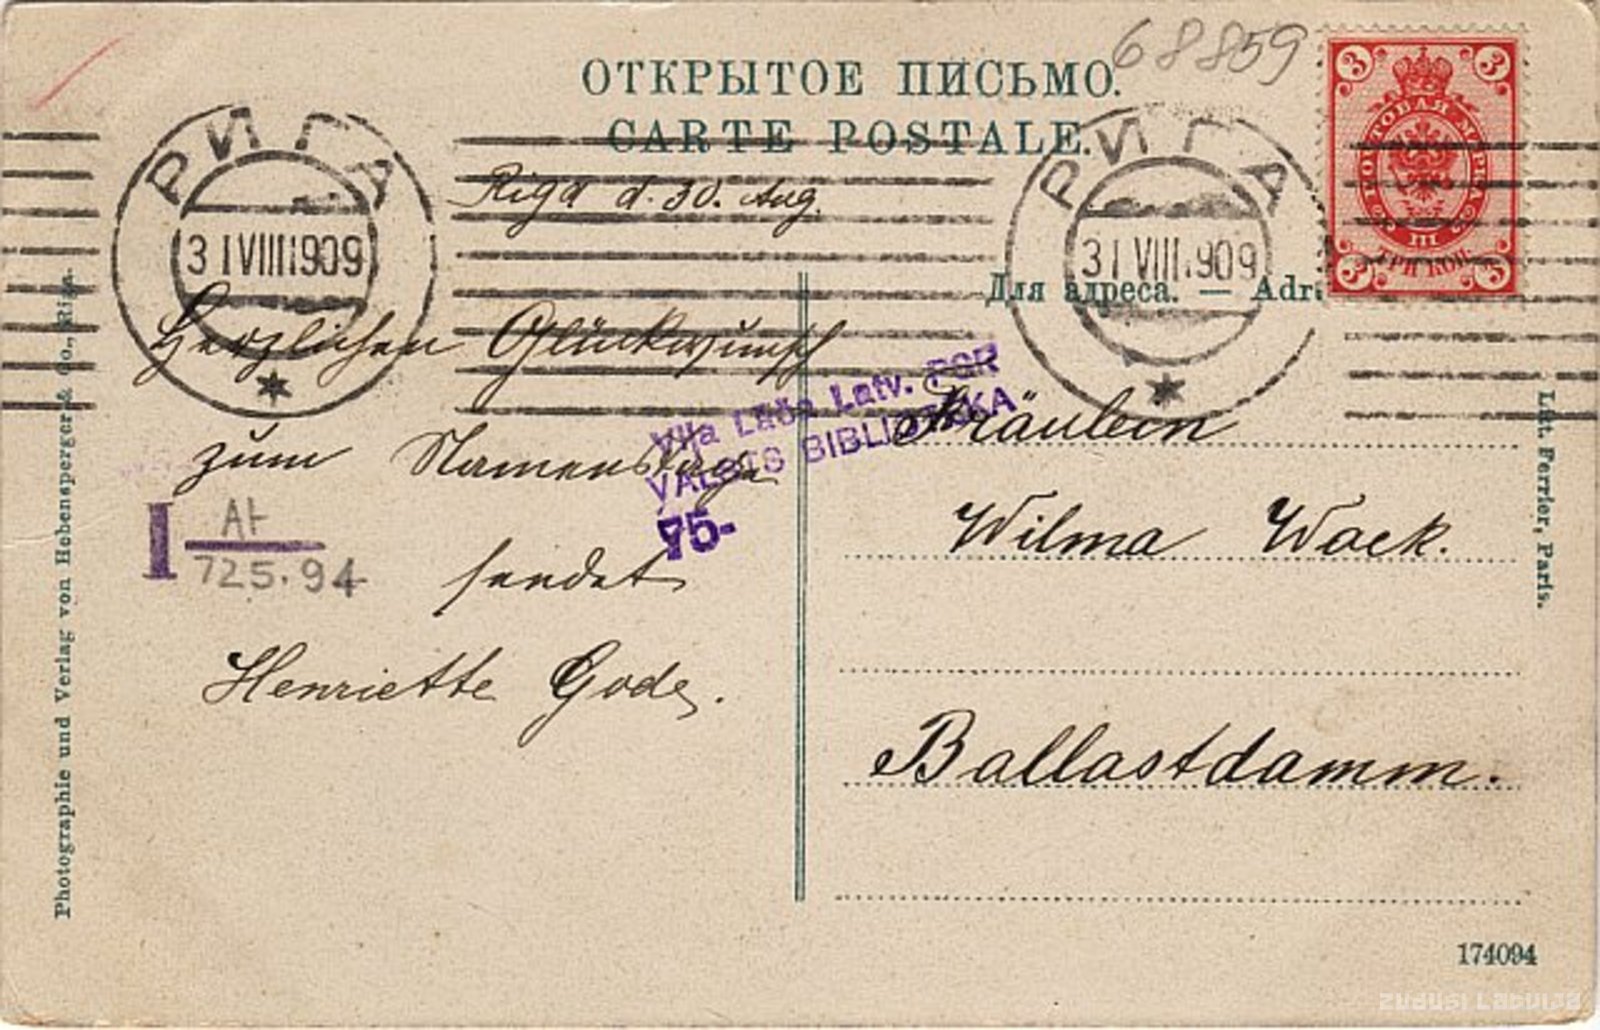 68859
ОТКРЫТОЕ ПИСЬМО.
CARTE POSTALE.
РИГА
31 VIII 1909
РИГА
31 VIII 1909
3 3
ПОЧТОВАЯ МАРКА
III
ТРИ КОП.
3 3
Riga d. 30. Aug.
Herzlichen Glückwunsch
zum Namenstage
sendet
Henriette Gode.
Для адреса. — Adr.
Viļa Lāča Latv. PSR
VALSTS BIBLIOTĒKA
75-
I
725.94
Fräulein
Wilma Wack.
Ballastdamm.
Photographie und Verlag von Hebensperger & Co., Riga.
Lut. Ferrier, Paris.
174094
zudusi Latvija